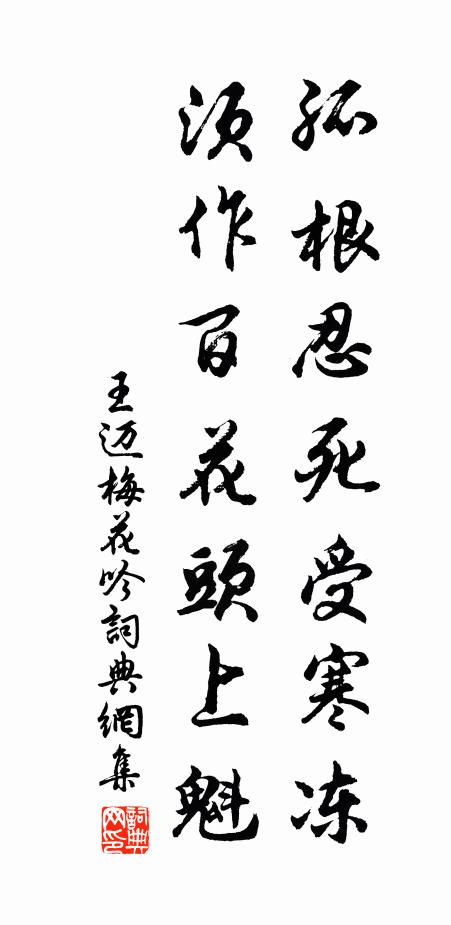 孤根忍死受寒冻
须作百花頭上魁
王迈梅花吟詞典網集
詞典网印